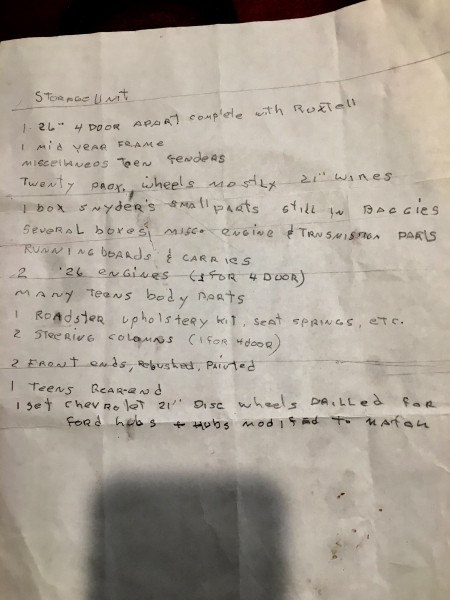 STORAGE UNIT
1 26" 4 DOOR APART complete with RUXTELL
1 MID YEAR FRAME
MISCELKNEOS TEEN FENDERS
TWENTY PROX, wheels MOSTLY 21" WIRES
1 box SNYDER'S SMALL PARTS STILL IN BAGGIES
SEVERAL boxes MISC. ENGINE & TRNSMISTION PARTS
RUNNING boards & CARRIES
2 '26 ENGINES (1 FOR 4 DOOR)
MANY TEENS body PARTS
1 ROADSTER upholstery kit, SEAT SPRINGS, ETC.
2 STEERING COLUMNS (1 FOR 4DOOR)
2 FRONT ends, Rebushed, PAINTED
1 TEENS REAR-END
1 set Chevrolet 21" DISC wheels DRILLED FOR
FORD hubs + Hubs MODIFED TO MATCH